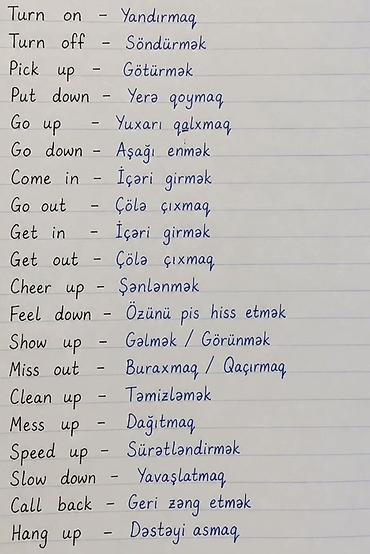 Turn on - Yandırmaq
Turn off - Söndürmək
Pick up - Götürmək
Put down - Yerə qoymaq
Go up - Yuxarı qalxmaq
Go down - Aşağı enmək
Come in - İçəri girmək
Go out - Çölə çıxmaq
Get in - İçəri girmək
Get out - Çölə çıxmaq
Cheer up - Şənlənmək
Feel down - Özünü pis hiss etmək
Show up - Gəlmək / Görünmək
Miss out - Buraxmaq / Qaçırmaq
Clean up - Təmizləmək
Mess up - Dağıtmaq
Speed up - Sürətləndirmək
Slow down - Yavaşlatmaq
Call back - Geri zəng etmək
Hang up - Dəstəyi asmaq